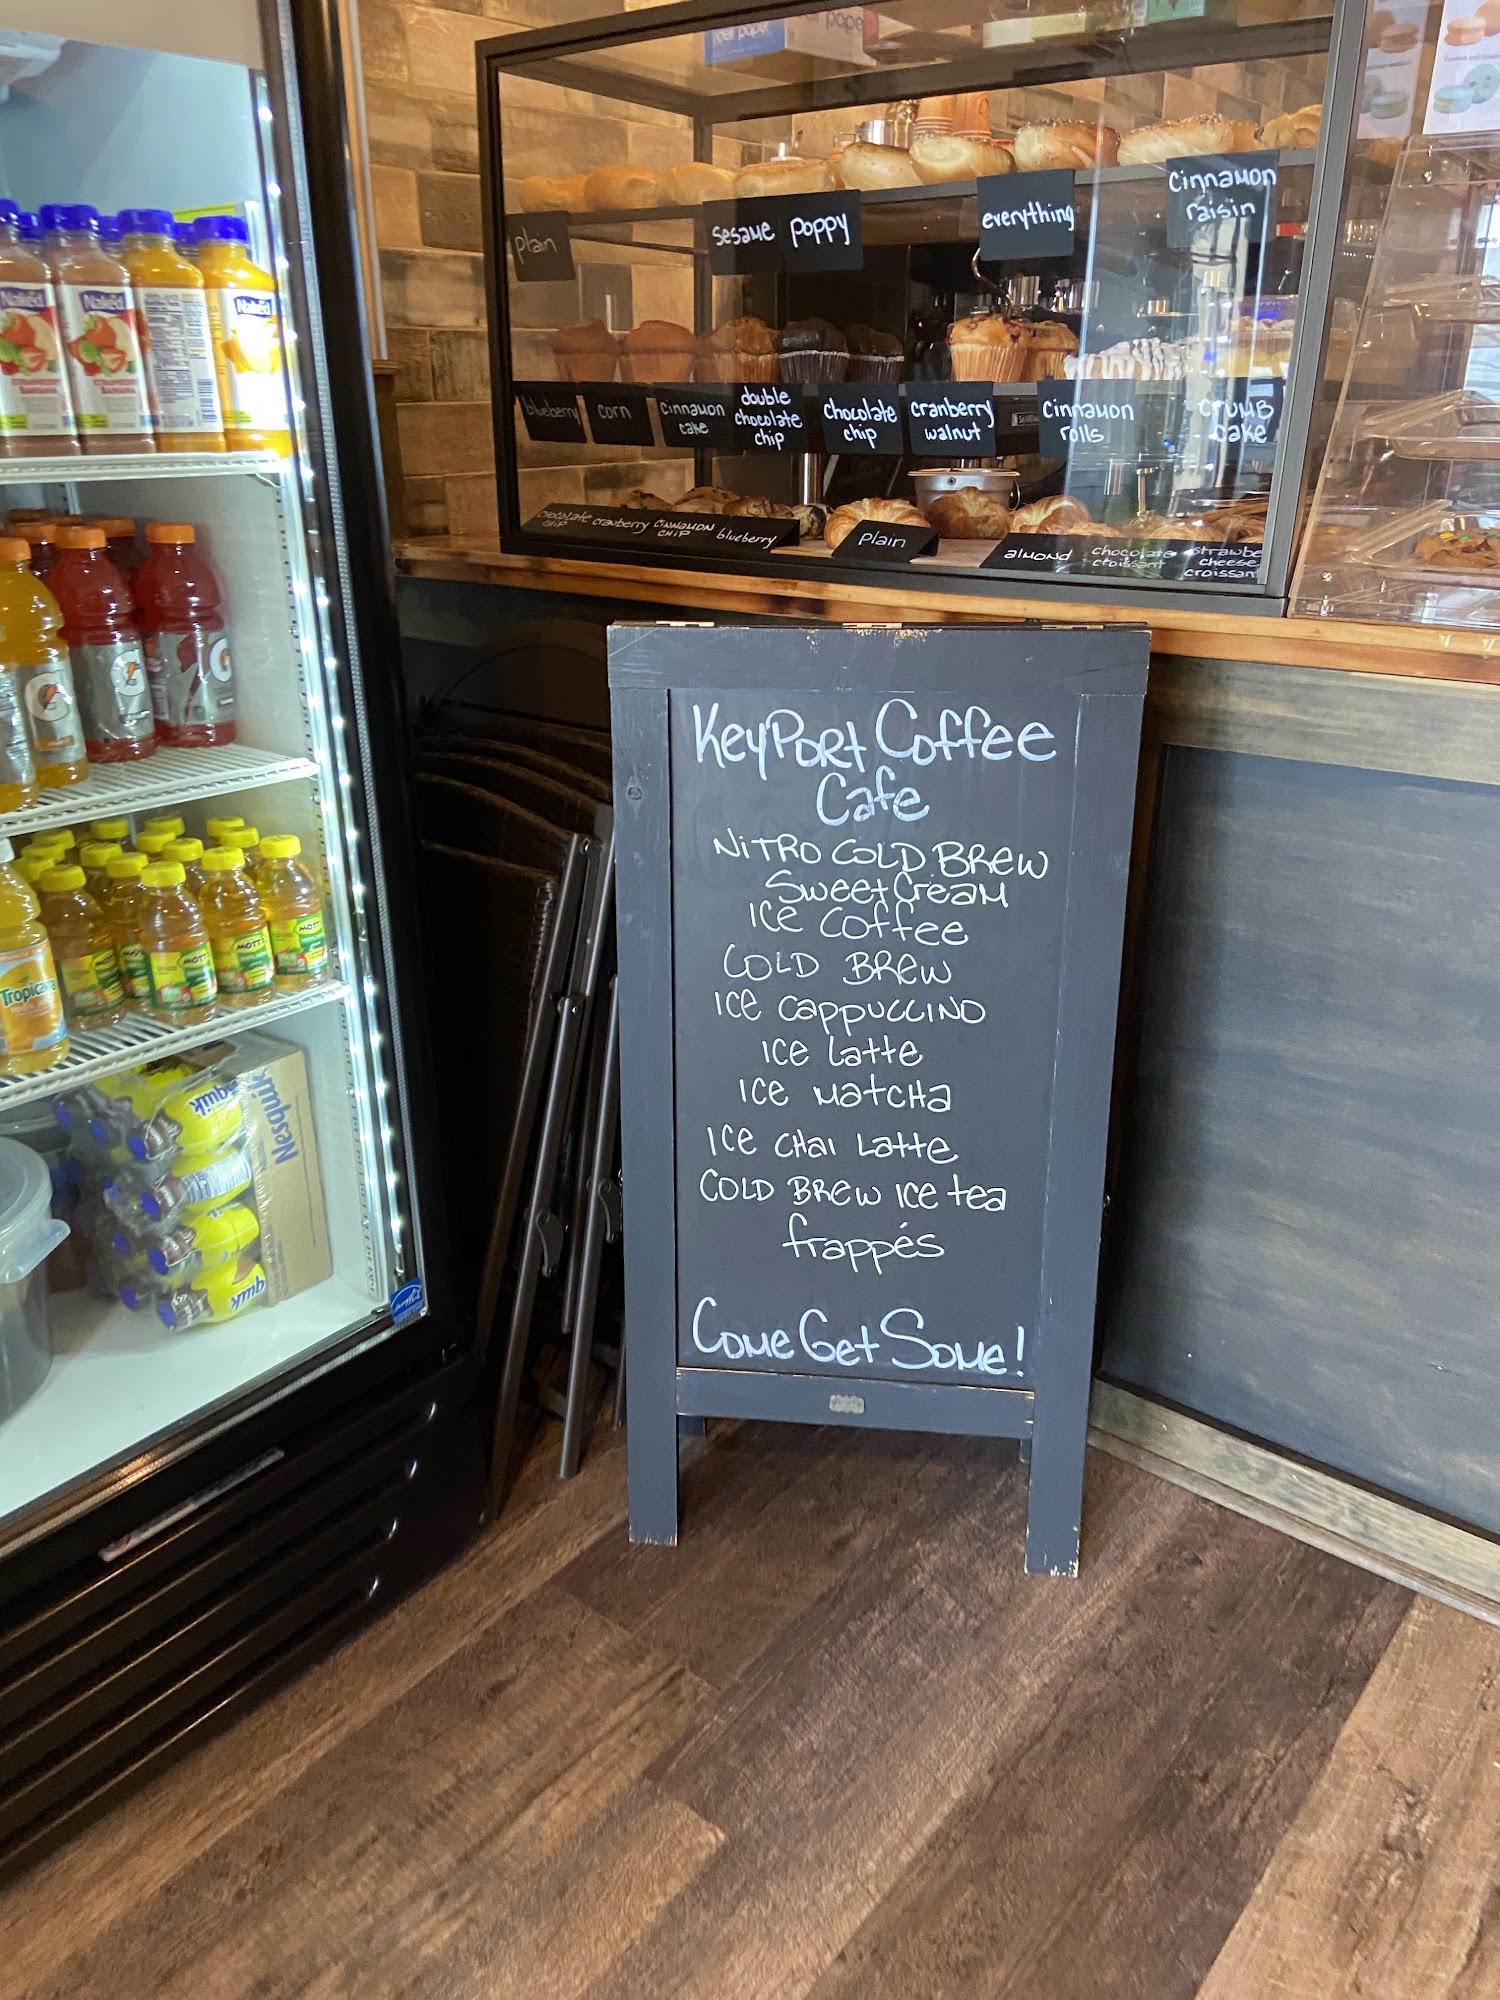 deli paper
plain
sesame
poppy
everything
cinnamon
raisin
blueberry
corn
cinnamon
cake
double
chocolate
chip
chocolate
chip
cranberry
walnut
cinnamon
rolls
crumb
cake
chocolate
chip
cranberry
cinnamon
chip
blueberry
plain
almond
chocolate
croissant
strawbe
cheese
croissant
KeyPort Coffee
Cafe
NiTRO COLD BREW
Sweet Cream
ICe Coffee
COLD BREW
ICe CappuccINO
ICe Latte
ICe MatcHa
ICe CHai Latte
COLD BREW ICe tea
frappés
Come Get Some!
Naked
Naked
Naked
G
G
G
MOTT'S
MOTT'S
MOTT'S
Tropicana
Nesquik
quik
quik